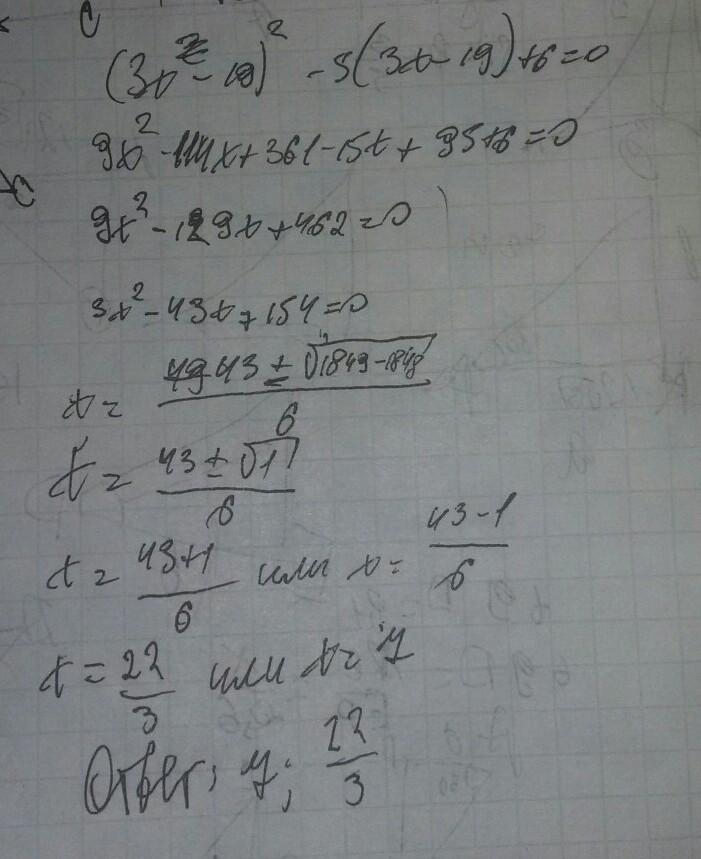 (3t - 19)² - 5(3t - 19) + 6 = 0
9t² - 114t + 361 - 15t + 95 + 6 = 0
9t² - 129t + 462 = 0
3t² - 43t + 154 = 0
t = (43 ± √(1849 - 1848)) / 6
t = (43 ± √1) / 6
t = (43+1) / 6 или t = (43-1) / 6
t = 22/3 или t = 7
Ответ: 7; 22/3